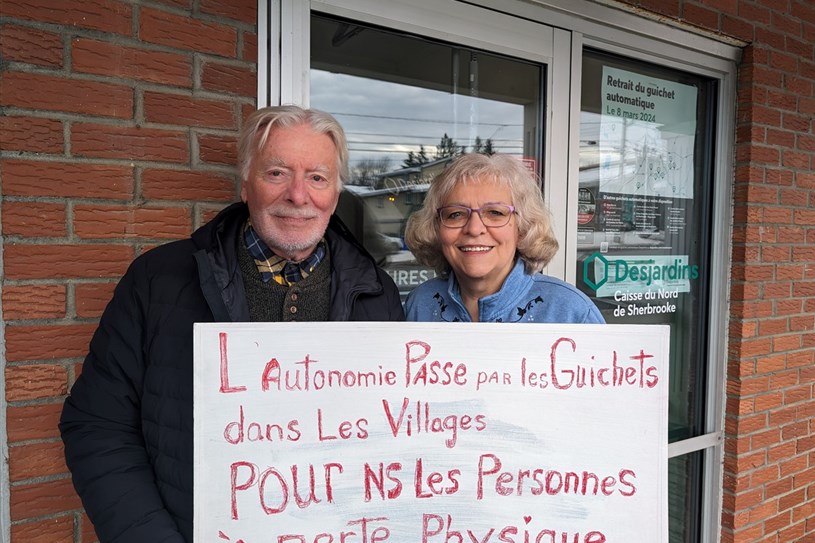 Retrait du guichet
automatique
Le 8 mars 2024
Desjardins
Caisse du Nord
de Sherbrooke
L'Autonomie Passe par les Guichets
dans Les Villages
POUR NS Les Personnes
à perte Physique